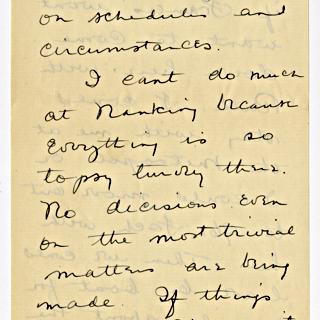 on schedules and
circumstances.
I cant do much
at Nanking because
everything is so
topsy turvey there.
No decisions even
on the most trivial
matters are being
made. If things